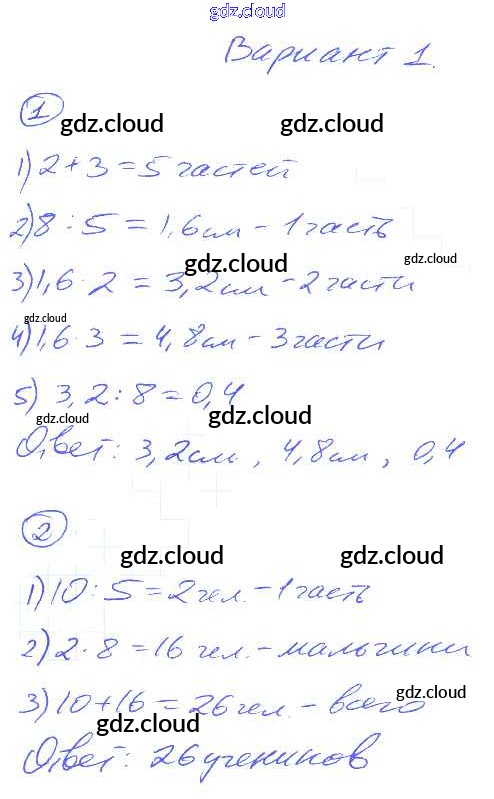 gdz.cloud
Вариант 1.
1
gdz.cloud gdz.cloud
1) 2 + 3 = 5 частей
2) 8 : 5 = 1,6 см - 1 часть
gdz.cloud gdz.cloud
3) 1,6 · 2 = 3,2 см - 2 части
gdz.cloud
4) 1,6 · 3 = 4,8 см - 3 части
5) 3,2 : 8 = 0,4
gdz.cloud gdz.cloud
Ответ: 3,2 см, 4,8 см, 0,4
2
gdz.cloud gdz.cloud
1) 10 : 5 = 2 чел. - 1 часть
2) 2 · 8 = 16 чел. - мальчики
gdz.cloud
3) 10 + 16 = 26 чел. - всего
gdz.cloud gdz.cloud
Ответ: 26 учеников